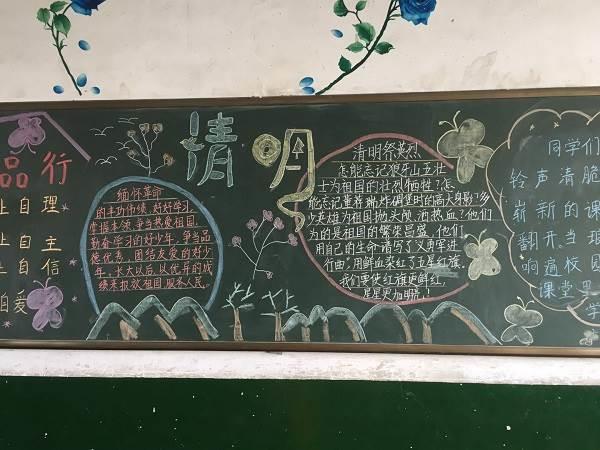 品行
上自理
自主
自信
自爱
清明
缅怀革命
的丰功伟绩,好好学习,
掌握本领,争当热爱祖国,
勤奋学习的好少年,争当品
德优秀,团结友爱的好少
年,长大以后,以优异的成
绩来报效祖国服务人民。
清明祭英烈
怎能忘记狼牙山五壮
士为祖国的壮烈牺牲?怎
能忘记董存瑞炸碉堡时的高大身影?多
少英雄为祖国抛头颅,洒热血?他们
为的是祖国的繁荣昌盛,他们
用自己的生命谱写了义勇军进
行曲,用鲜血染红了五星红旗,
我们要使红旗更鲜红,
星星更加明亮,
同学们
铃声清脆
崭新的课
翻开,当琅
响遍校园
课堂里
学